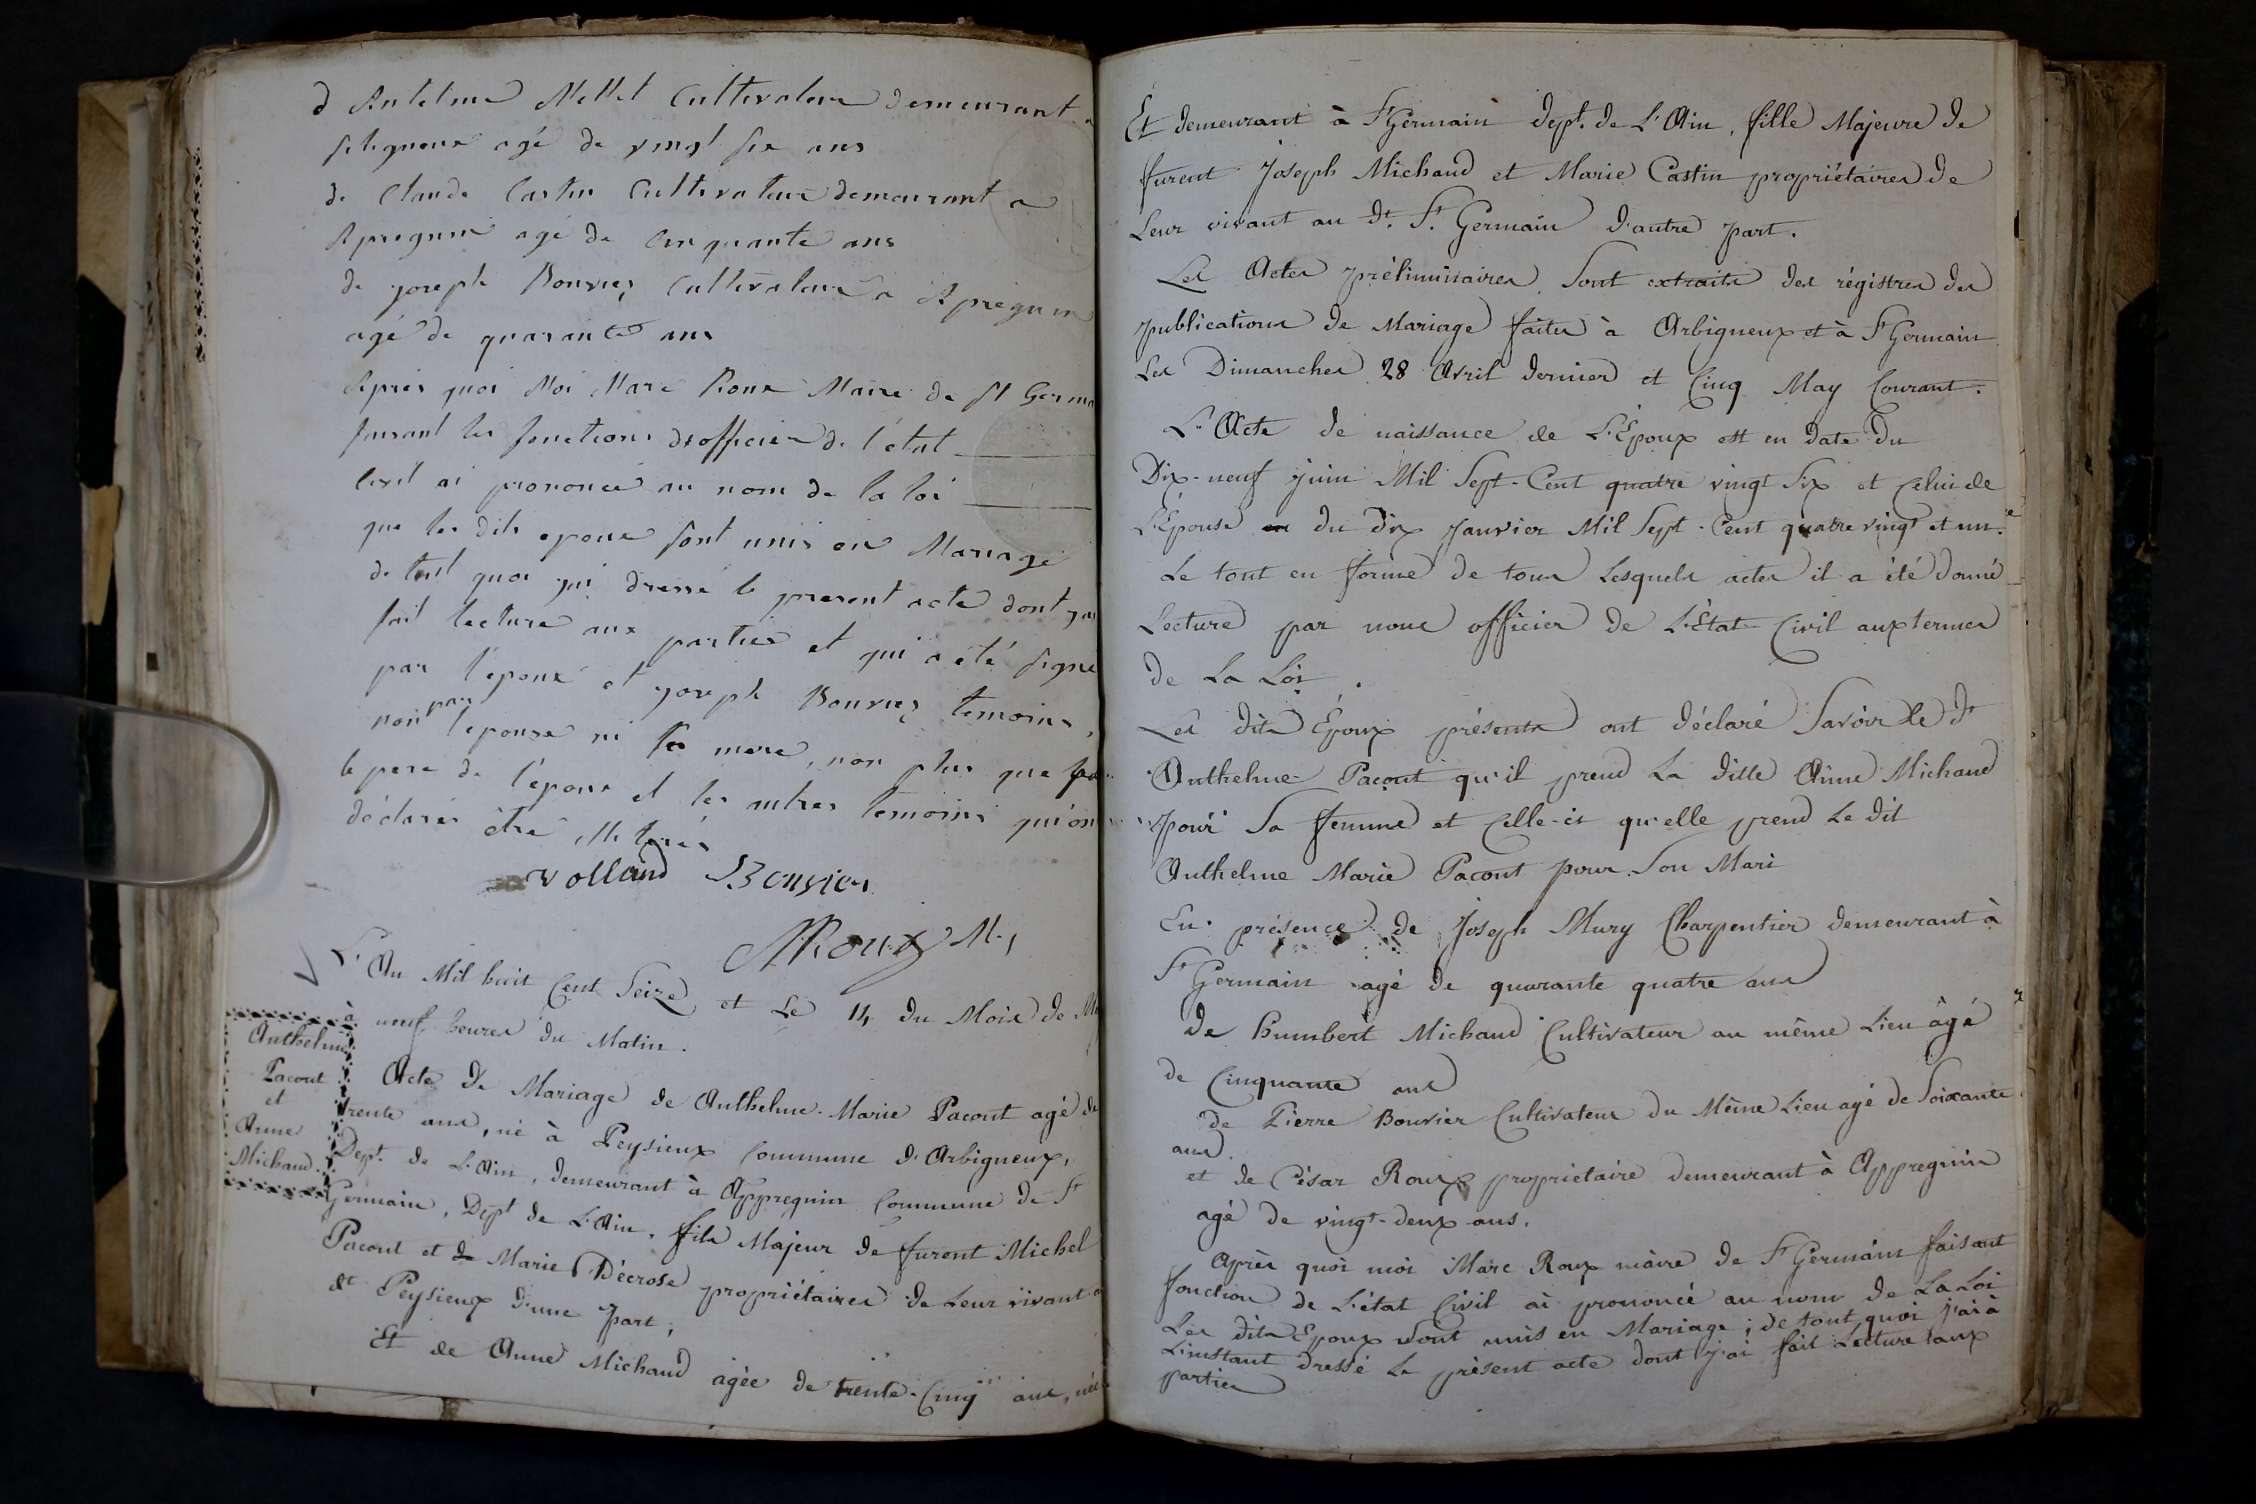 d Antelme Mettet Cultivateur demeurant a
seligneux agé de vingt six ans
de Claude Castin Cultivateur demeurant a
Apregnin agé de Cinquante ans
de joseph Bouvier Cultivateur a Apregnin
agé de quarante ans
Après quoi Moi Marc Roux Maire de St Germa
faisant les fonctions d'officier de l'état
Civil ai prononcé au nom de la loi
que les dits epoux sont unis en Mariage
de tout quoi j'ai dressé le present acte dont j'ai
fait lecture aux parties et qui a été signé
par l'epoux et joseph Bouvier temoins,
non par l'epouse ni sa mere, non plus que
le pere de l'epoux et les autres temoins qu'on
déclarés être illiterés
Volland Bouvier
MRoux M.,
L'An Mil huit Cent Seize et Le 14 du Mois de
à neuf heures du Matin.
Anthelme
Pacout
et
Anne
Michaud.
Acte de Mariage de Anthelme-Marie Pacout agé de
trente ans, né à Peysieux Commune d'Arbigneux,
Dept. de L'Ain, demeurant à Appregnin Commune de St
Germain, Dept de L'Ain. fils Majeur de furent Michel
Pacout et de Marie Décrose propriétaires de Leur vivant a
dt Peysieux d'une Part;
Et de Anne Michaud agée de trente-Cinq ans, née
Et demeurant à St Germain dept. de L'Ain, fille Majeure de
furent Joseph Michaud et Marie Castin propriétaires de
Leur vivant au dt. St. Germain d'autre part.
Les Actes préliminaires Sont extraits des régistres des
publications de Mariage faites à Arbigneux et à St Germain
Les Dimanches 28 Avril dernier et Cinq May Courant.
L'Acte de naissance de L'Époux est en date du
Dix-neuf juin Mil Sept-Cent quatre vingt Six et Celui de
L'Épouse en du dix Janvier Mil Sept-Cent quatre vingt et un.
Le tout en forme de tous Lesquels actes il a été donné
Lecture par nous officier de L'État Civil aux termes
de La Loi.
Les dits Époux présents ont déclaré Savoir le dt
Anthelme Pacout qu'il prend La ditte Anne Michaud
pour Sa femme et Celle-ci qu'elle prend Le dit
Anthelme Marie Pacout pour Son Mari
En présence de Joseph Mury Charpentier demeurant à
St Germain agé de quarante quatre ans
de Humbert Michaud Cultivateur au même Lieu âgé
de Cinquante ans
de Pierre Bouvier Cultivateur du Même Lieu agé de Soixante
ans
et de César Roux proprietaire demeurant à Appregnin
agé de vingt-deux ans.
Après quoi moi Marc Roux maire de St Germain faisant
fonction de L'état Civil ai prononcé au nom de La Loi
Les dits Epoux Sont unis en Mariage; de tout quoi j'ai à
L'instant dressé Le présent acte dont j'ai fait Lecture aux
parties